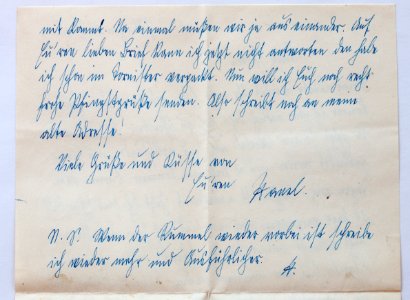 mit kommt. Na einmal müßen wir ja aus einander. Auf
Eu'ren lieben Brief kann ich jetzt nicht antworten den habe
ich schon im Tornister verpackt. Nun will ich Euch noch recht
frohe Pfingstgrüße senden. Also schreibt noch an meine
alte Adresse!
Viele Grüße und Küsse von
Eu'ren
N. B. Wenn der Rummel wieder vorbei ist schreibe
ich wieder mehr und Ausführlicher.